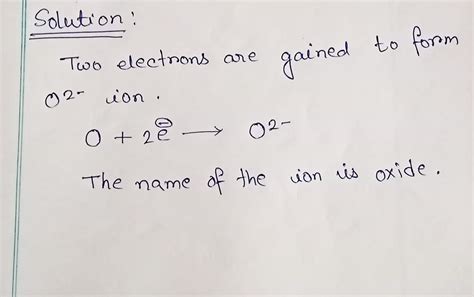 Solution:
Two electrons are gained to form
O²⁻ ion.
O + 2e⊖ → O²⁻
The name of the ion is oxide.